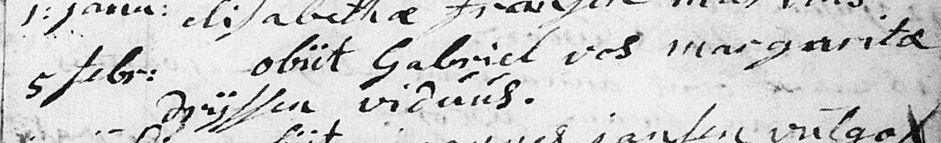 1: janu: elisabethæ fransen maritus.
5 febr: obiit Gabriel vos margaritæ
Dryssen viduus.
obiit joannes jansen vulgo